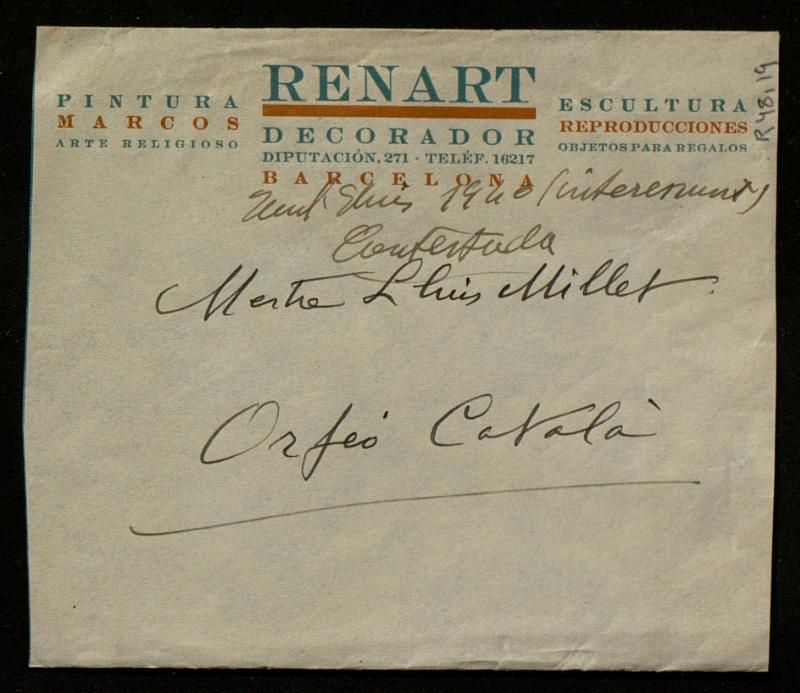 PINTURA
MARCOS
ARTE RELIGIOSO
RENART
DECORADOR
DIPUTACIÓN, 271 - TELÉF. 16217
BARCELONA
ESCULTURA
REPRODUCCIONES
OBJETOS PARA REGALOS
R 48,19
1940
Contestada
Mestre Lluis Millet.
Orfeó Català